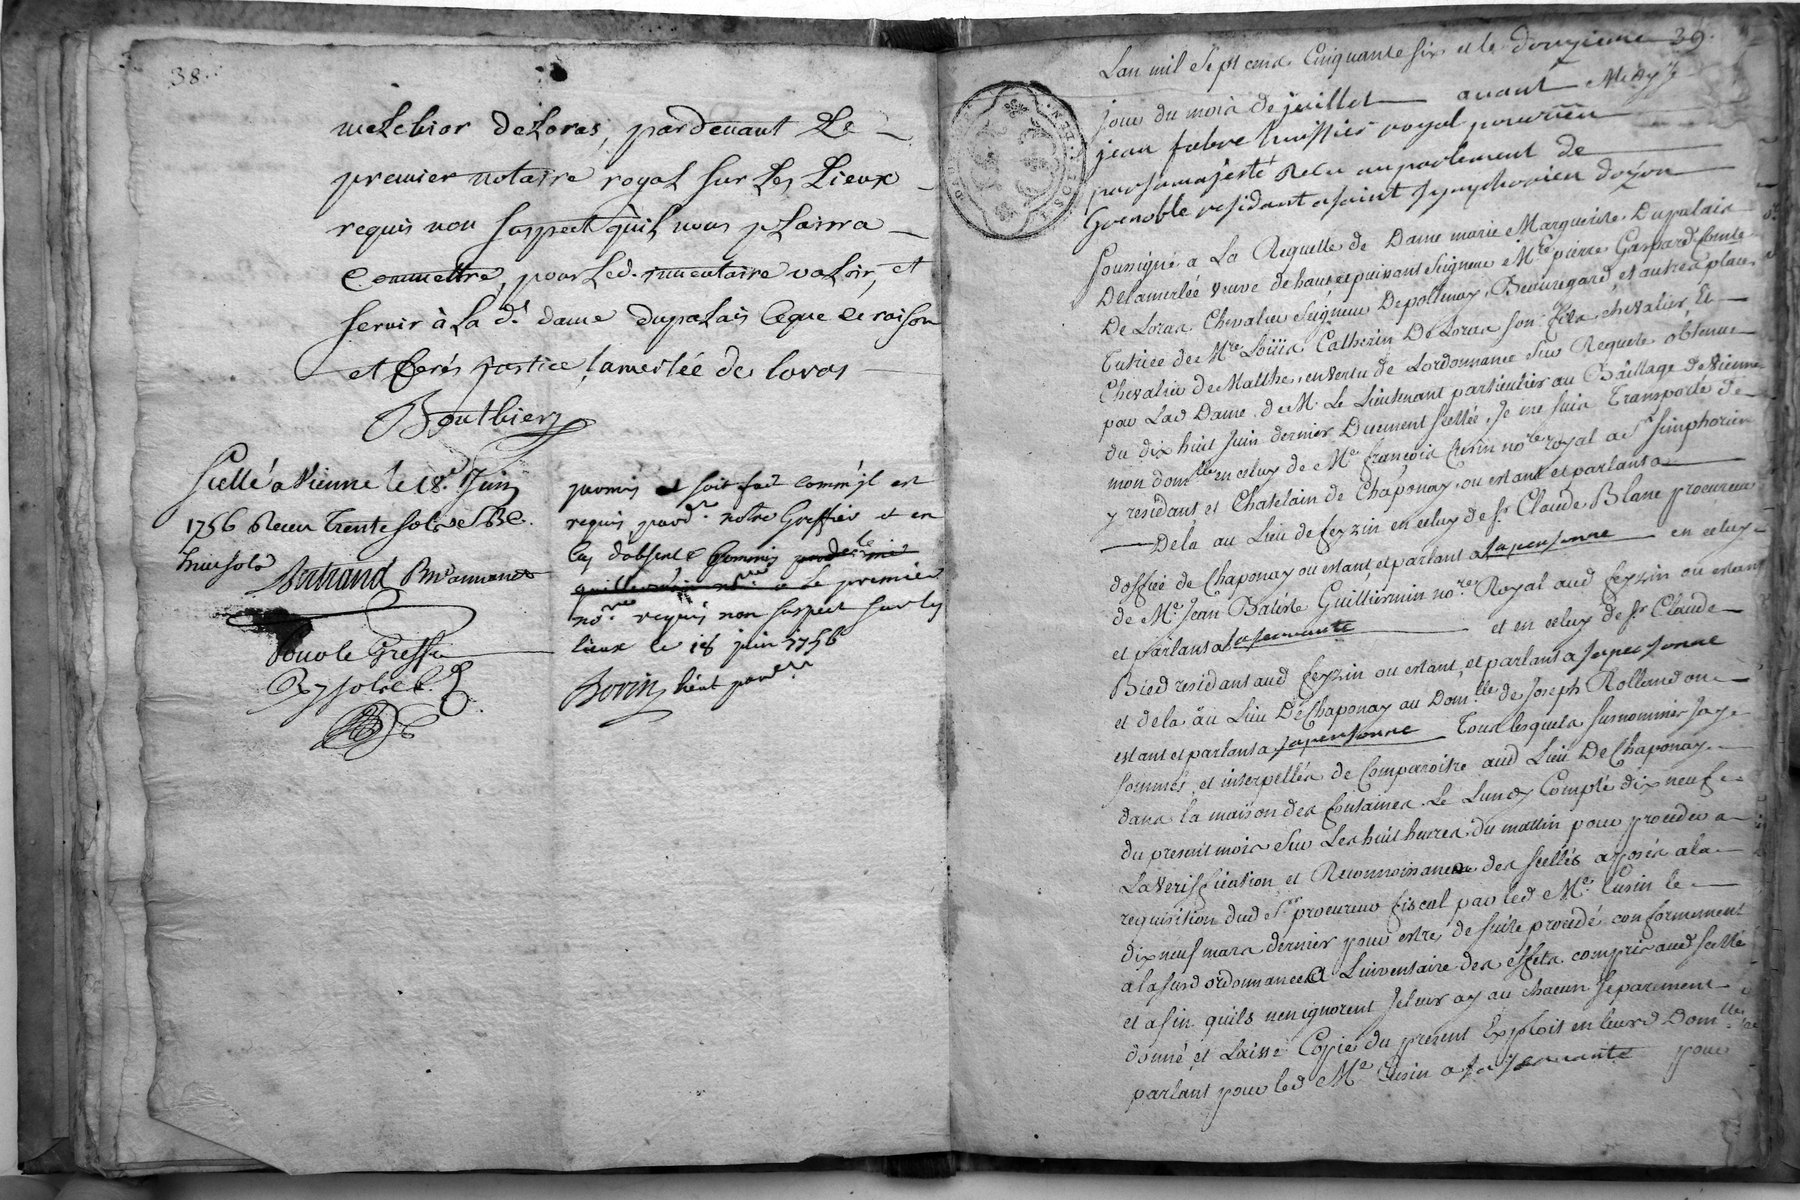 38.
melchior deLoras, pardevant Le
premier notaire royal sur Les Lieux
requis non suspect qu'iL vous pLaira
Commettre, pour Led. inventaire valoir, et
servir à La de. dame dupaLais Ceque de raison
et ferés justice, lamerlée de loras
Bouthier
Scellé a Vienne le 18e. Juin
1756 Receu Trente sols
huit sols
Bertrand
Pour le Greffe
permis et soit fait comme jl est
requis pardt. notre Greffier et en
cas d'absence commis
le premier
nore. requis non suspect sur les
lieux le 18 juin 1756
Borin lieut part.er
39.
Lan mil Sept cens Cinquante six et le douzieme
jour du mois de juillet avant Midy Je
jean fabre huissier royal
par sa majesté Receu au parlement de
Grenoble residant a saint Symphorien dozon
soussigné a La Requette de Dame marie Marguerite Dupalais
Delamerlée veuve de haut et puissant Seigneur Mre. pierre Gaspard Comte
De Loras Chevalier Seigneur Depollenay, Beauregard, et autres places
Tutrice de Mre Loüis Catherin De Loras son fils chevalier,
Chevalier de Malthe, en vertu de Lordonnance sur Requete obtenue
par Lad Dame de M. Le Lieutenant particulier au Bailliage de Vienne
du dix huit Juin dernier Duement scellée, Je me suis Transporté de
mon domlle en celuy de Me. françois Cusin nore. royal a St simphorien
y residant et Chatelain de Chaponay, ou estant et parlant a
Dela au Lieu de feyzin en celuy de Sr. Claude Blanc procureur
doffice de Chaponay ou estant, et parlant a sapersonne en celuy
de Me. Jean Batiste Guilliermin nore. Royal aud feyzin ou estant
et parlant a sa servante et en celuy de Sr. Claude
Bied residant aud feyzin ou estant, et parlant a sapersonne
et dela au Lieu De Chaponay au Domlle. de Joseph Rolland ou
estant et parlant a sapersonne Tous lesquels surnommés Jay
sommés et interpellés de Comparoitre aud Lieu De Chaponay
dans la maison des fontaines Le Lundy Compté dix neuf
du present mois sur Les huit heures du mattin pour proceder a
La veriffication et Reconnoissance des scellés apposés a la
requisition dud Sr. procureur fiscal par led Me. Cusin le
dix neuf mars dernier pour estre de suite procedé conformement
a la susd ordonnance a Linventaire des effets compris aud scellé
et afin quils nen ignorent Je leur ay au chacun separement
donné et Laissé Coppie du present Exploit en leurs Domlles
parlant pour led Me Cusin a sa servante pour